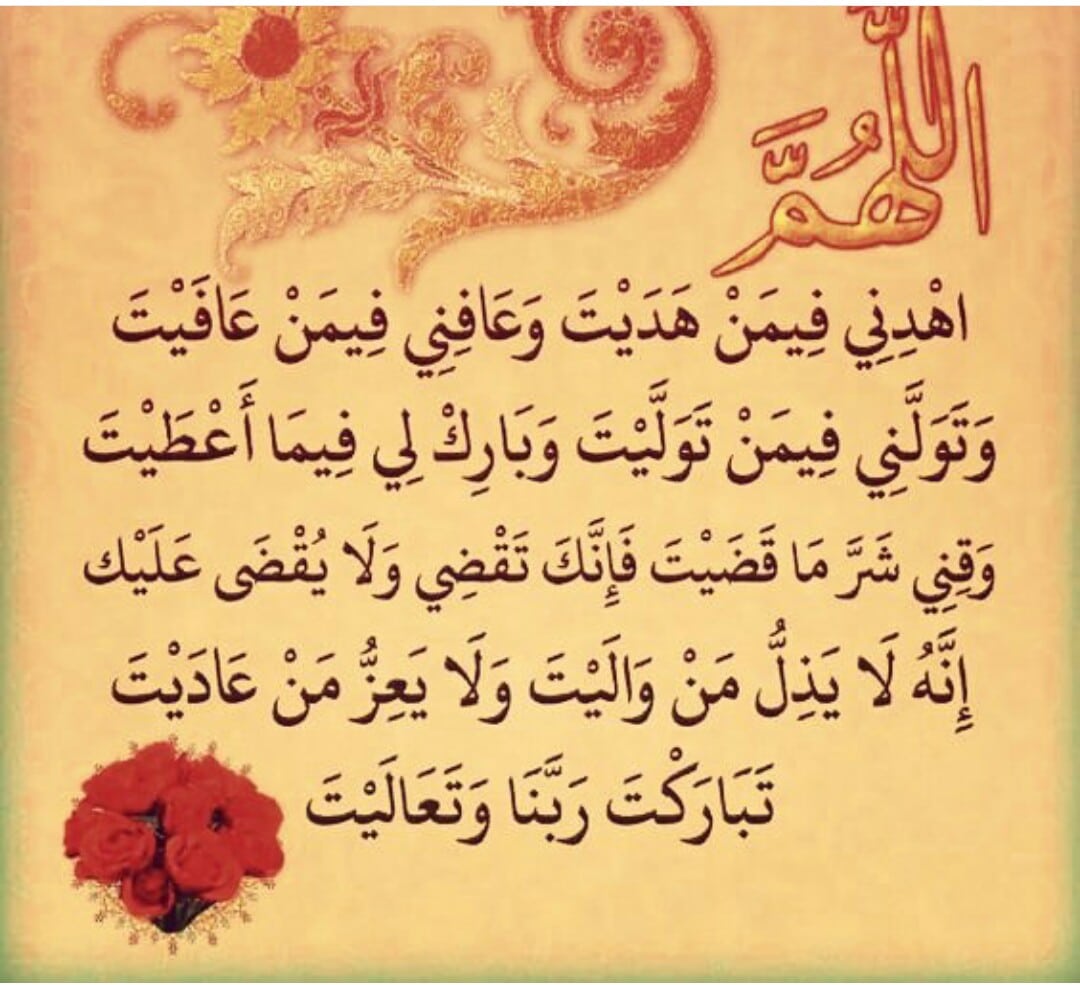 اللَّهُمَّ
اهْدِنِي فِيمَنْ هَدَيْتَ وَعَافِنِي فِيمَنْ عَافَيْتَ
وَتَوَلَّنِي فِيمَنْ تَوَلَّيْتَ وَبَارِكْ لِي فِيمَا أَعْطَيْتَ
وَقِنِي شَرَّ مَا قَضَيْتَ فَإِنَّكَ تَقْضِي وَلَا يُقْضَى عَلَيْك
إِنَّهُ لَا يَذِلُّ مَنْ وَالَيْتَ وَلَا يَعِزُّ مَنْ عَادَيْتَ
تَبَارَكْتَ رَبَّنَا وَتَعَالَيْتَ